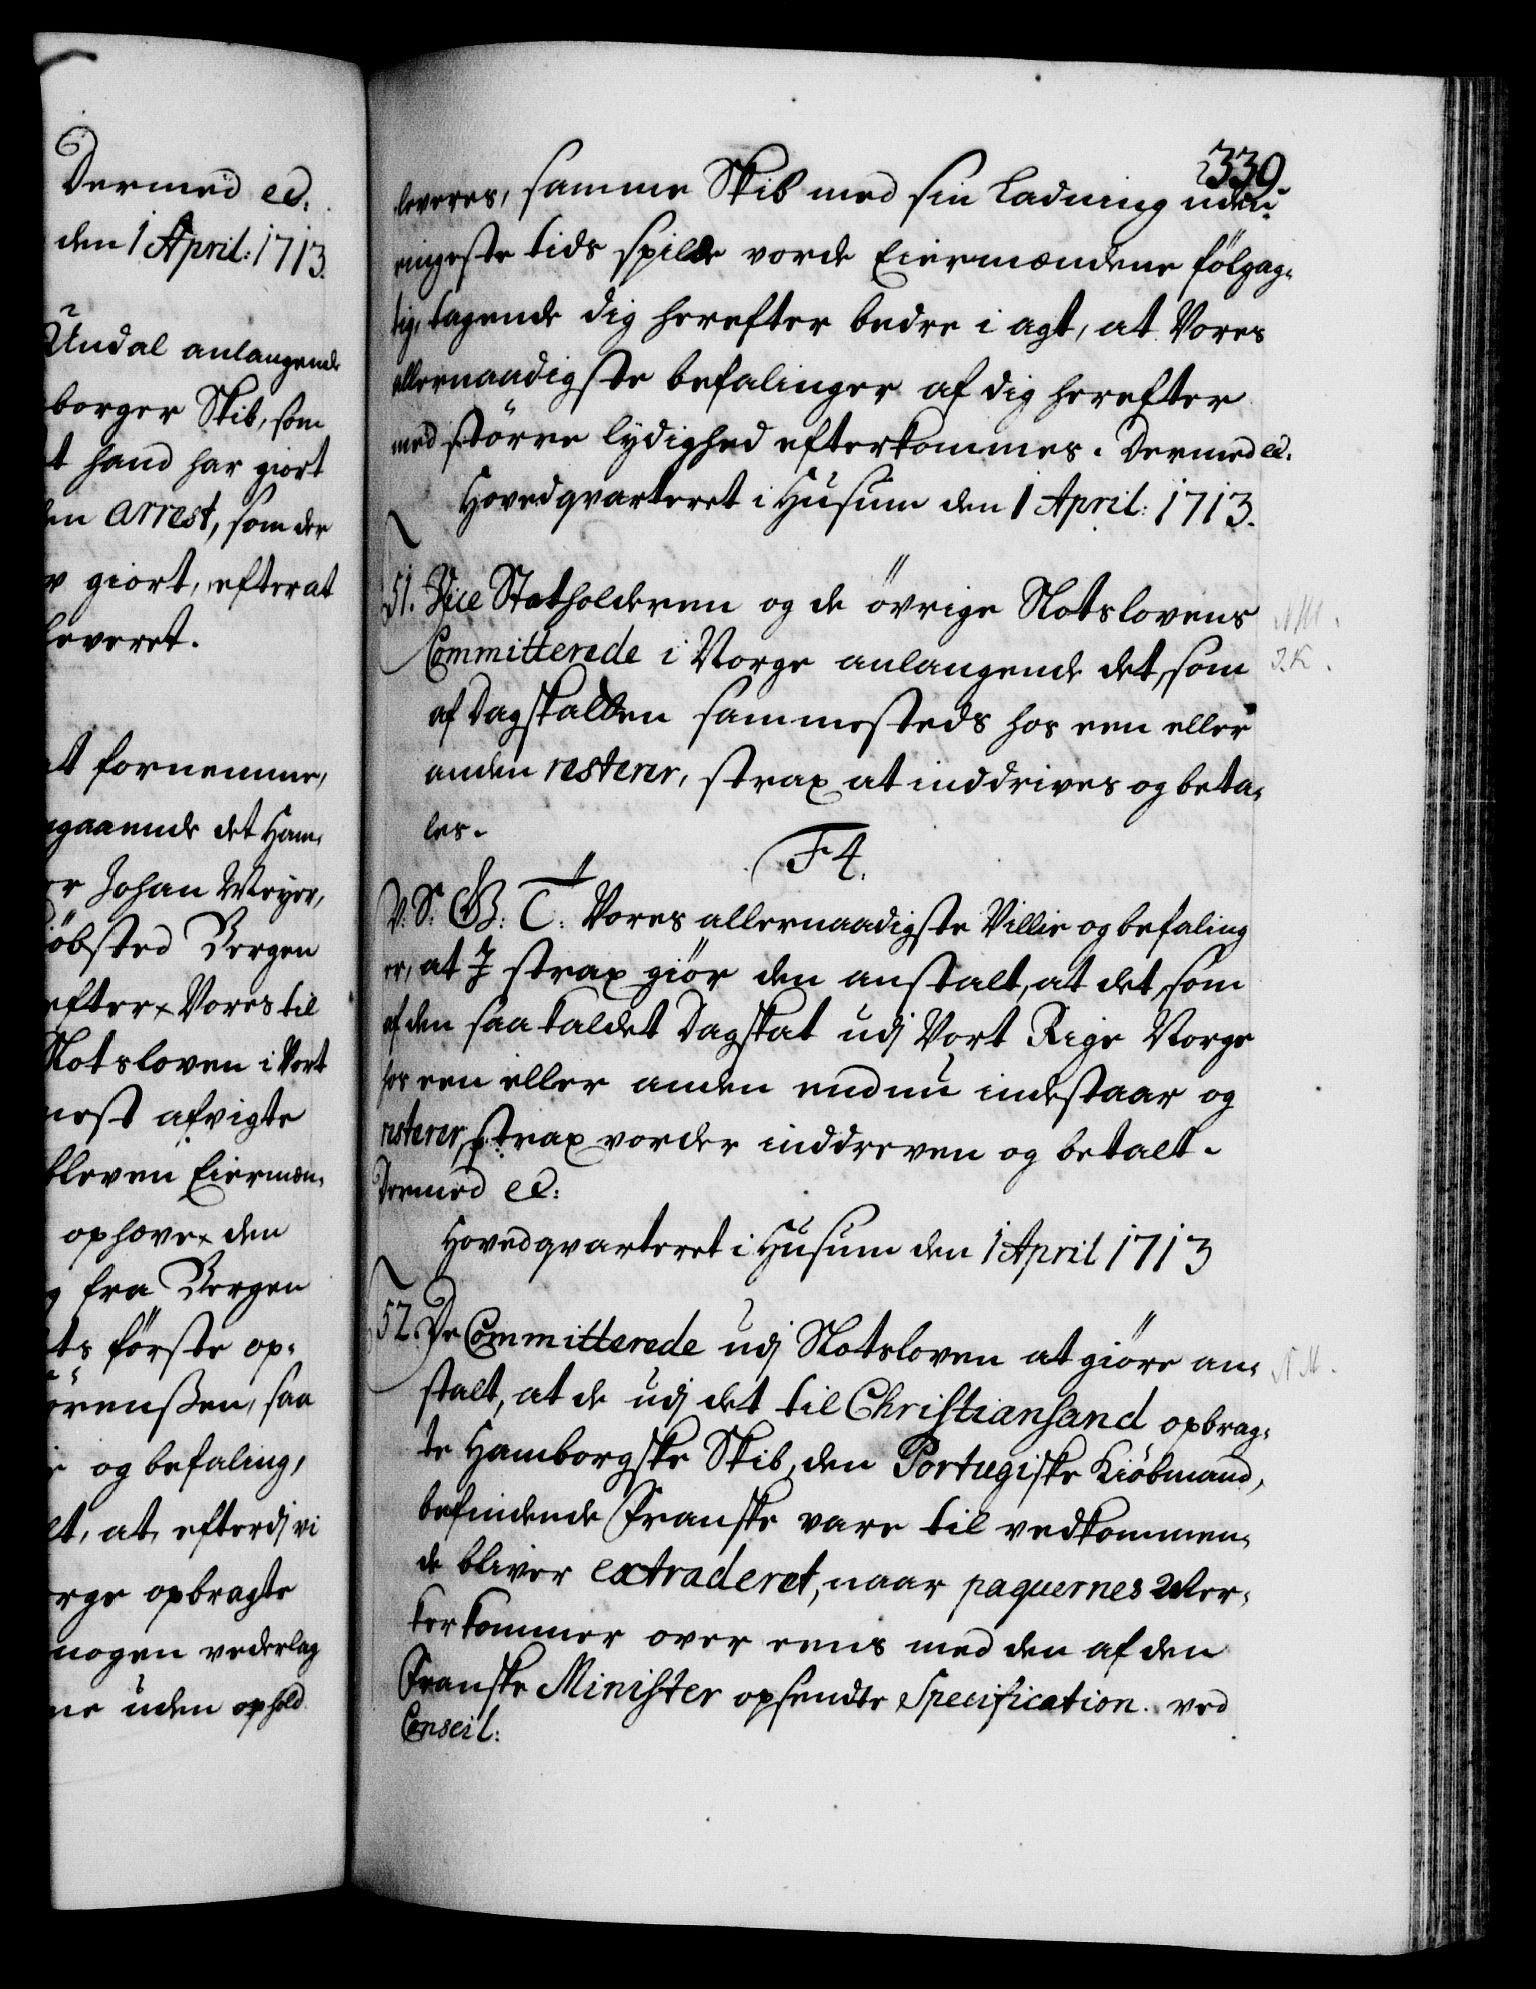 Dermed ec.
den 1 April: 1713.
Undal anlangende
borger Skib, som
t hand har giort
en Arrest, som der
v giort, efter at
leveret.
at fornemme,
ngaaende det Ham-
er Johan Meyer,
iöbsted Bergen
efter Vores til
Slotsloven i Vort
nest afvigte
bleven Eiermæn-
ophæve den
g fra Bergen
ts förste op-
örenßen, saa
e og befaling,
et, at, efterdj vi
orge opbragte
nogen vederlag
ne uden ophold
339.
leveres, samme Skib med sin Ladning uden
ringeste tids spilde vorde Eiermændene fölgag-
tig, tagende dig herefter bedre i agt, at Vores
allernaadigste befalinger af dig herefter
med större lydighed efterkommes. Dermed ec.
Hovedqvarteret i Husum den 1 April: 1713.
51. Vice Statholderen og de övrige Slotslovens
Committerede i Norge anlangende det, som
af Dagskatten sammesteds hos een eller
anden resterer, strax at inddrives og beta-
les.
F 4.
V. S. G. T. Vores allernaadigste Villie og befaling
er, at I strax giör den anstalt, at det, som
af den saa kaldet Dagskat udj Vort Rige Norge
hos een eller anden endnu indestaar og
resterer, strax vorder inddreven og betalt.
Dermed ec:
Hovedqvarteret i Husum den 1 April 1713
52. De Committerede udj Slotsloven at giöre an-
stalt, at de udj det til Christiansand opbrag-
te Hamborgske Skib, den Portugiske Kiöbmand,
befindende Franske vare til vedkommen-
de bliver extraderet, naar paquernes Mer-
ker kommer over eens med den af den
Franske Minister opsendte Specification. ved
Conseil:
N M.
J. K.
N M.